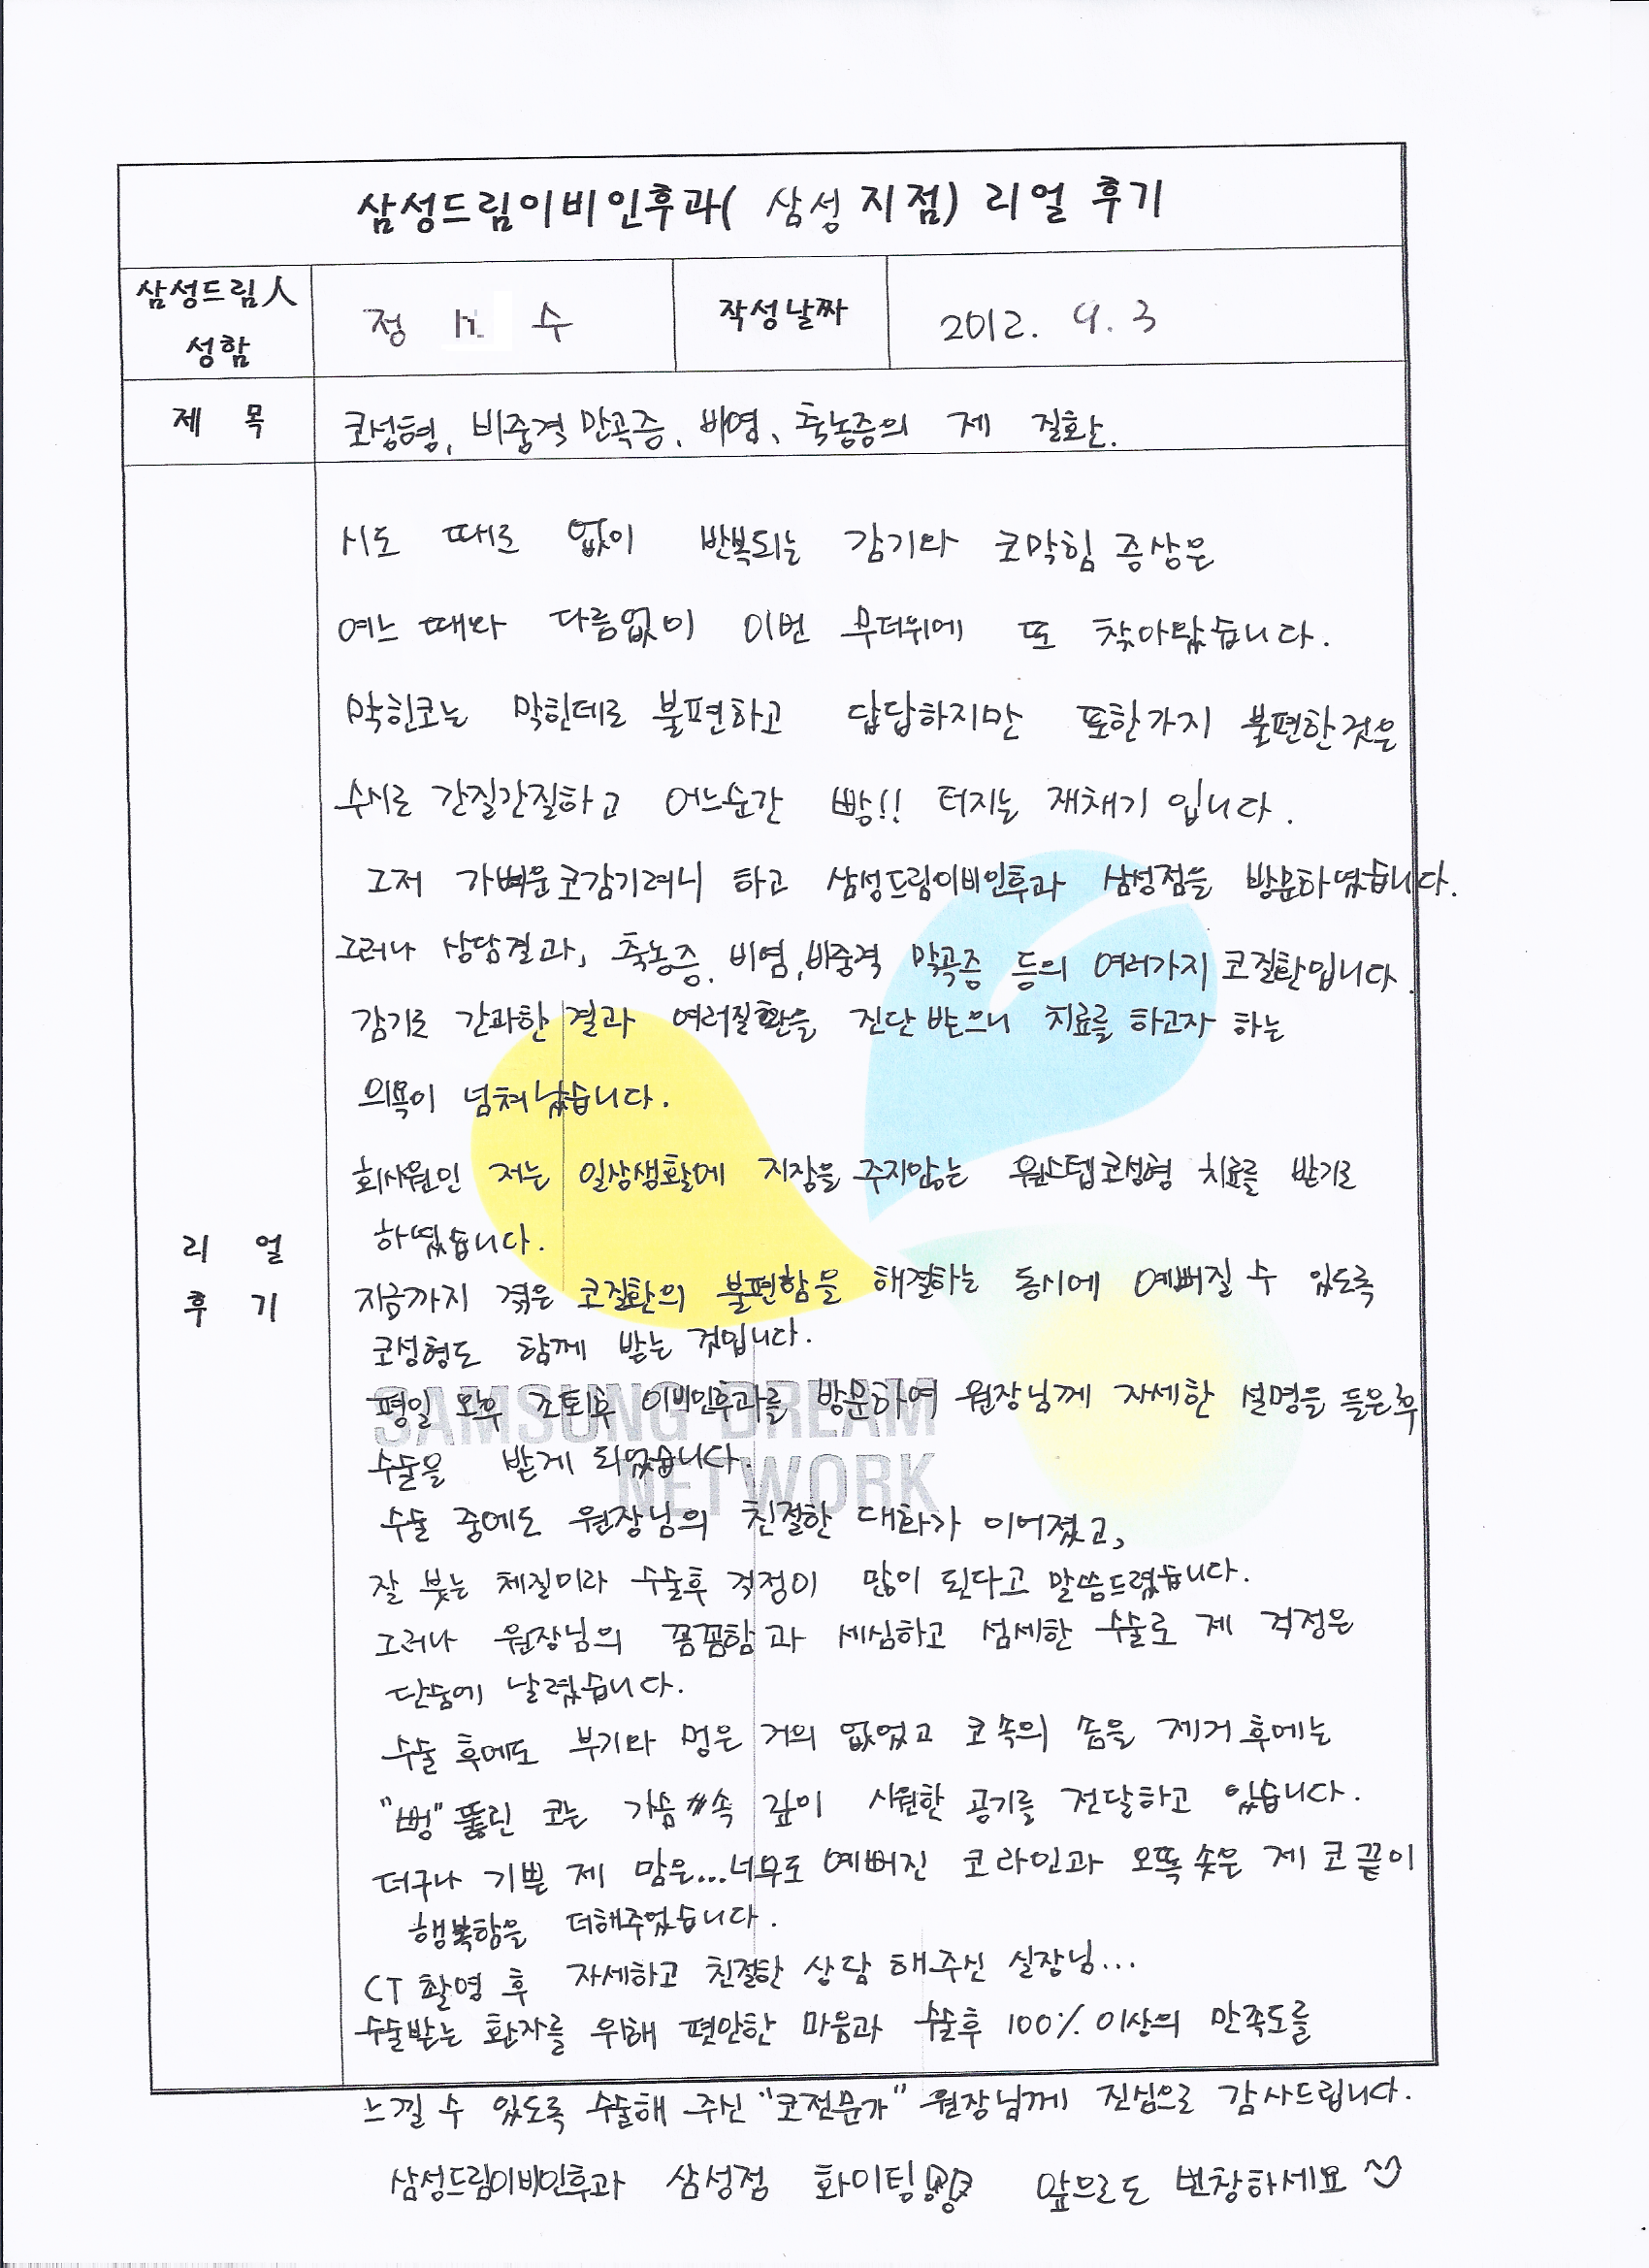 삼성드림이비인후과( 삼성 지점) 리얼 후기
삼성드림人 성함
정 수
작성날짜
2012. 9. 3
제 목
코성형, 비중격 만곡증, 비염, 축농증의 제 질환.
리 얼 후 기
시도 때로 없이 반복되는 감기와 코막힘 증상은
여느 때와 다름없이 이번 무더위에 또 찾아왔습니다.
막힌코는 막힌데로 불편하고 답답하지만 또한가지 불편한것은
수시로 간질간질하고 어느순간 빵!! 터지는 재채기 입니다.
그저 가벼운 코감기려니 하고 삼성드림이비인후과 삼성점을 방문하였습니다.
그러나 상담결과, 축농증, 비염, 비중격 만곡증 등의 여러가지 코질환입니다.
감기로 간과한 결과 여러질환을 진단 받으니 치료를 하고자 하는
의욕이 넘쳐 났습니다.
회사원인 저는 일상생활에 지장을 주지않는 원스텝코성형 치료를 받기로
하였습니다.
지금까지 겪은 코질환의 불편함을 해결하는 동시에 예뻐질 수 있도록
코성형도 함께 받는 것입니다.
평일 오후 조퇴후 이비인후과를 방문하여 원장님께 자세한 설명을 들은후
수술을 받게 되었습니다.
SAMSUNG DREAM
NETWORK
수술 중에도 원장님의 친절한 대화가 이어졌고,
잘 붓는 체질이라 수술후 걱정이 많이 된다고 말씀드렸습니다.
그러나 원장님의 꼼꼼함과 세심하고 섬세한 수술로 제 걱정은
단숨에 날렸습니다.
수술 후에도 부기와 멍은 거의 없었고 코 속의 솜을 제거 후에는
"뻥" 뚫린 코는 가슴 속 깊이 시원한 공기를 전달하고 있습니다.
더구나 기쁠 제 맘은...너무도 예뻐진 코라인과 오똑솟은 제 코끝이
행복함을 더해주었습니다.
CT 촬영 후 자세하고 친절한 상담 해주신 실장님...
수술받는 환자를 위해 편안한 마음과 수술후 100% 이상의 만족도를
느낄 수 있도록 수술해 주신 "코전문가" 원장님께 진심으로 감사드립니다.
삼성드림이비인후과 삼성점 화이팅!! 앞으로도 번창하세요 ^^